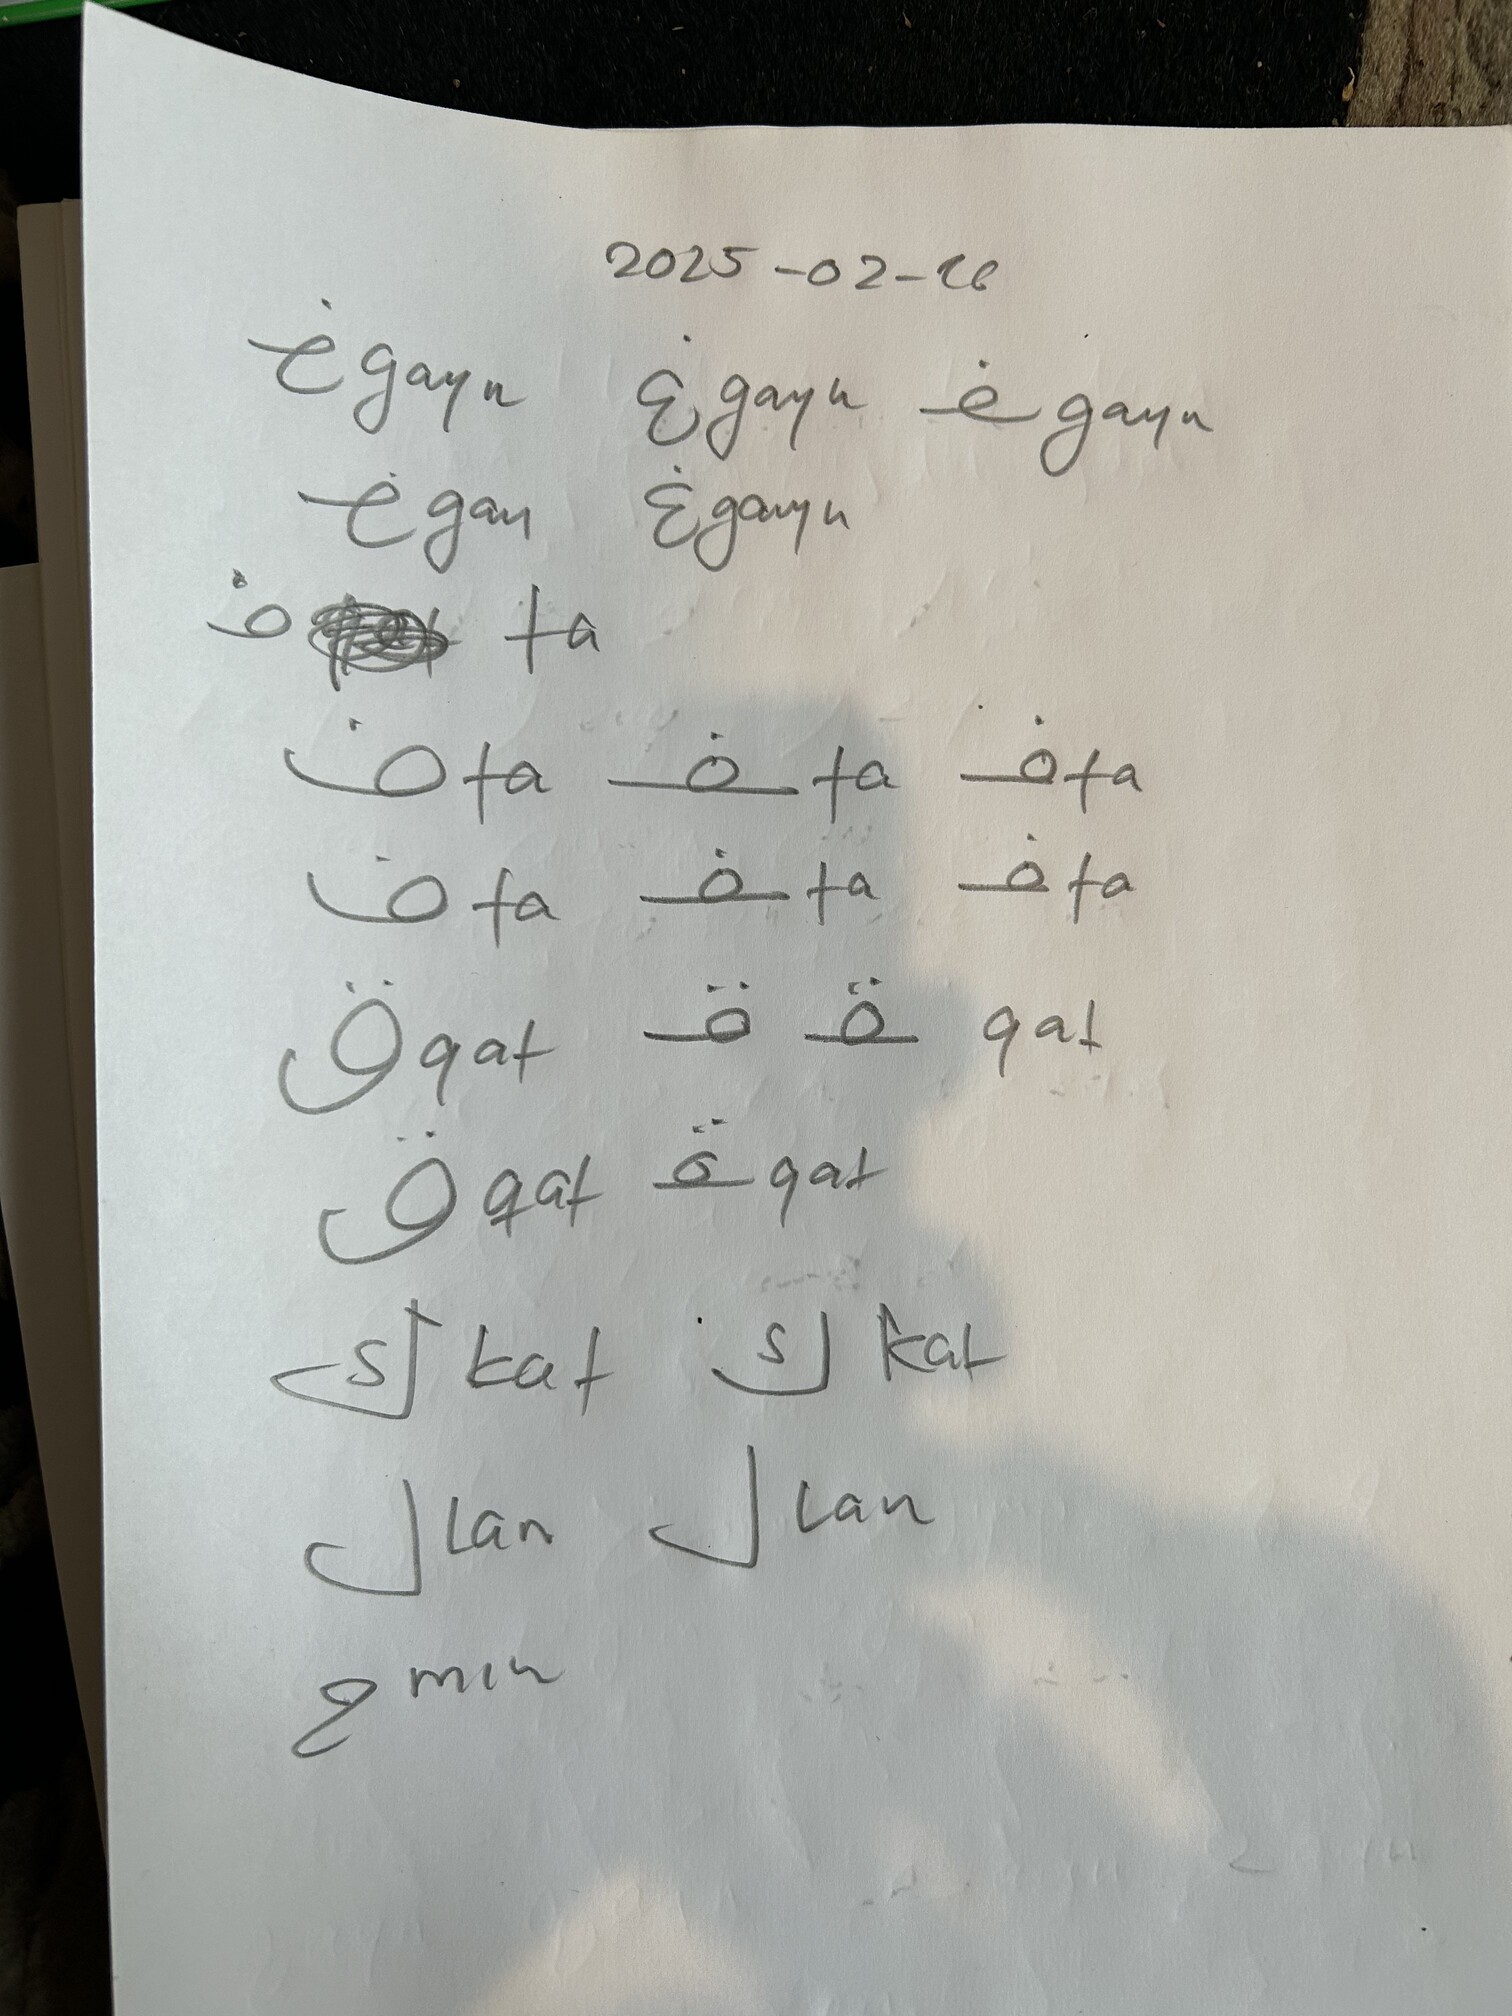 2025-02-16
غ gayn غ gayn غ gayn
غ gan غ gayn
ف fa
ف fa ف fa ف fa
ف fa ف fa ف fa
ق qaf ق ق qaf
ق qaf ق qaf
ك kaf ك kaf
ل Lan ل Lan
م min